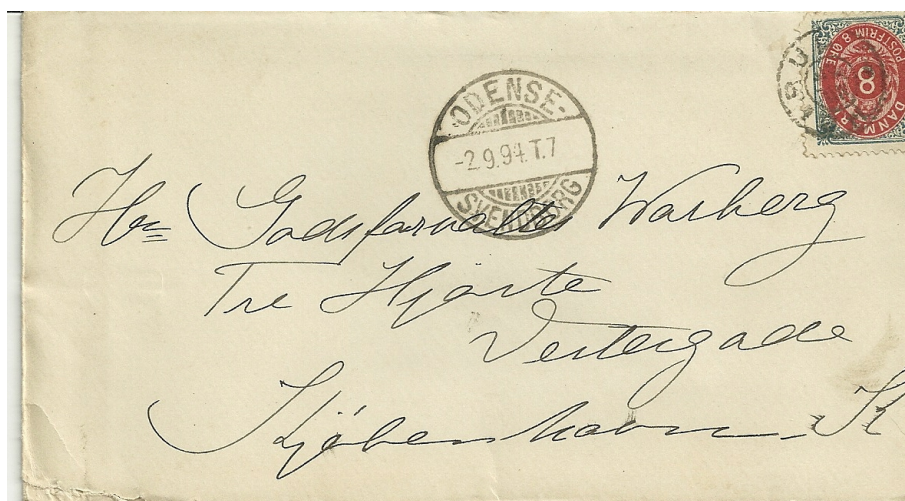 POSTFRIM 8 ØRE
8
DANMARK
ODENSE-
-2.9.94.T.7
SVENDBORG
Hr. Godsforvalter Warberg
Tre Hjorte
Vestergade
Kjøbenhavn. K